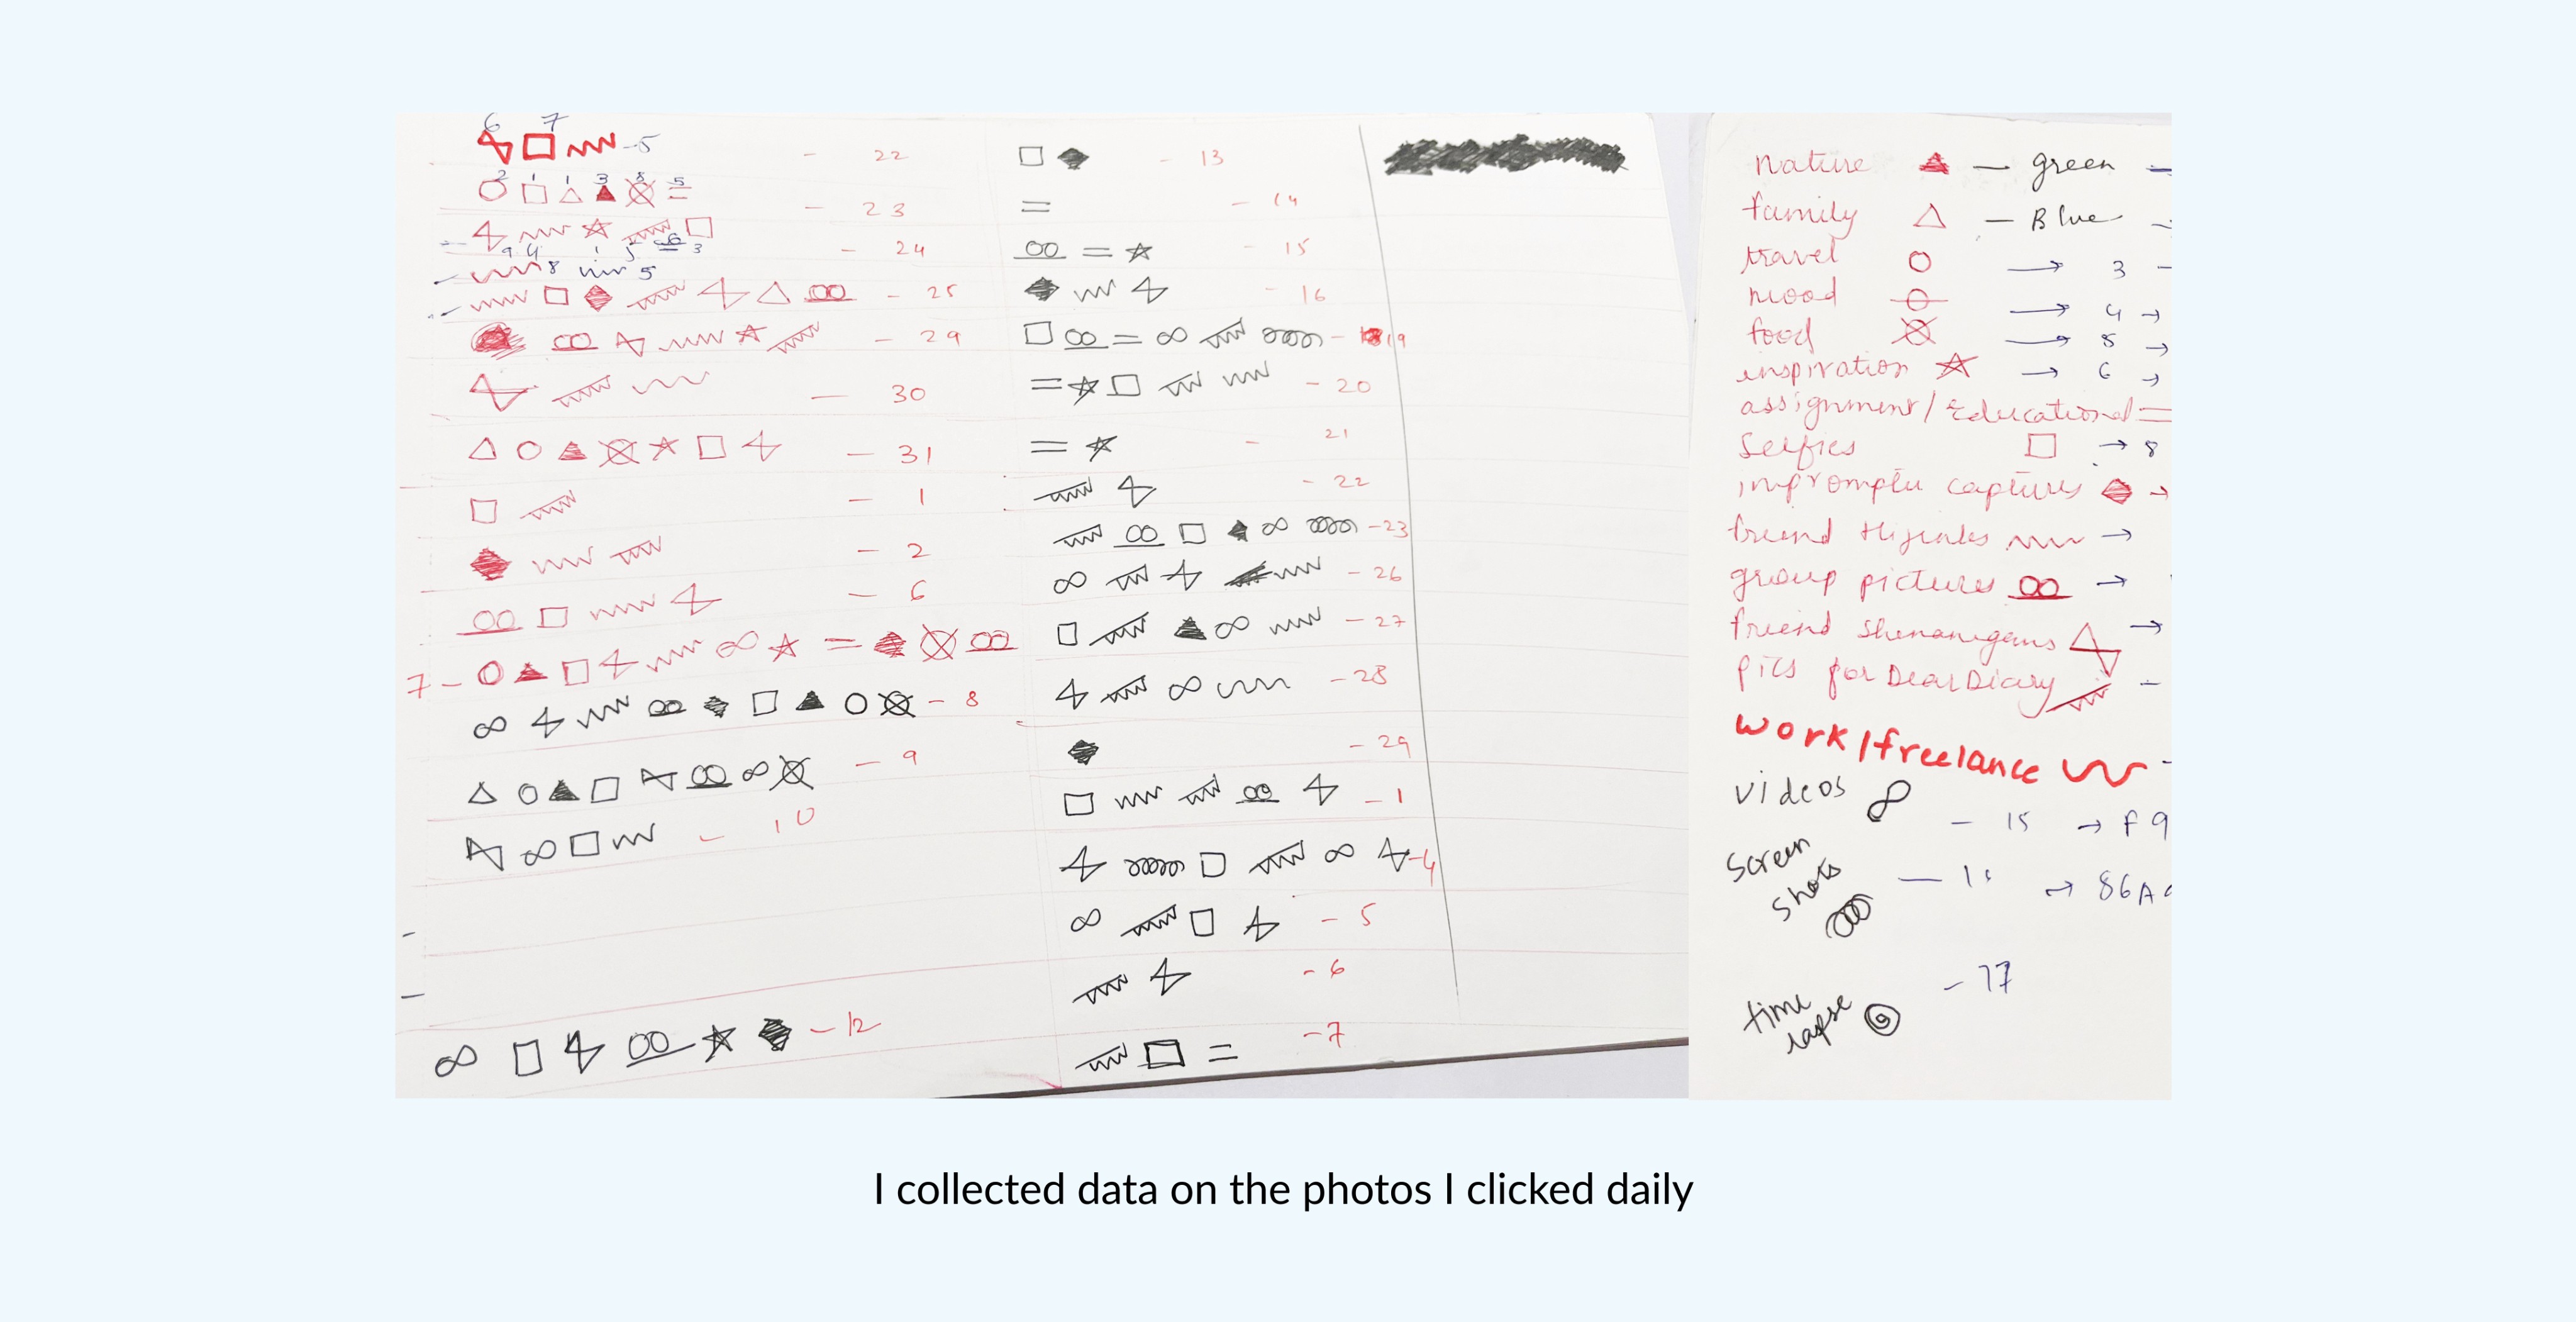 6 7
-5
- 22
2 1 1 3 8 5
- 23
- 24
9 4 1 5 6 3
8 5
- 25
- 29
- 30
- 31
- 1
- 2
- 6
7 -
- 8
- 9
- 10
- 12
- 13
- 14
- 15
- 16
- 19
- 20
- 21
- 22
- 23
- 26
- 27
- 28
- 29
- 1
- 4
- 5
- 6
- 7
nature — green
family — Blue
travel → 3
mood → 4 →
food → 5 →
inspiration → 6 →
assignment/Educational =
Selfies → 8
impromptu captures →
friend Hijinks →
group pictures →
friend shenanigans →
pics for Dear Diary
work/freelance
videos - 15 → F9
Screen shots → 86A
time lapse - 17
I collected data on the photos I clicked daily